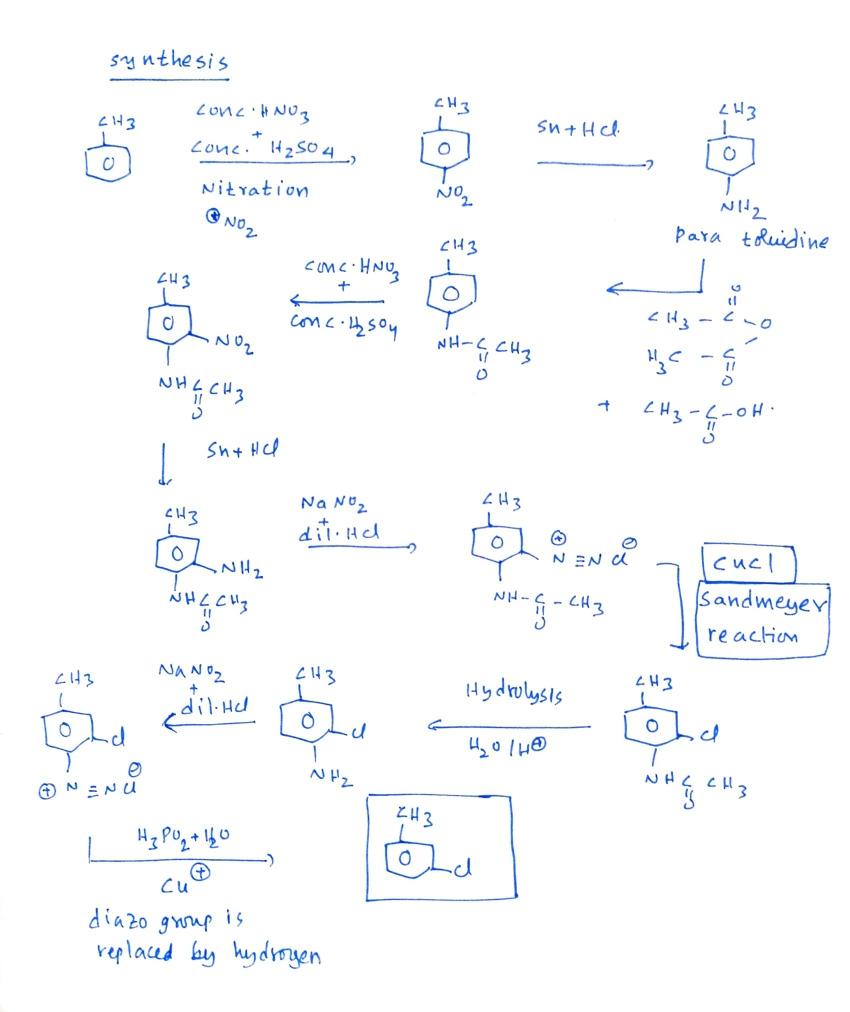 synthesis
CH3
conc. HNO3
+
conc. H2SO4
Nitration
⊕NO2
CH3
NO2
Sn + HCl.
CH3
NH2
para toluidine
O
CH3 - C - O
H3C - C
O
+ CH3 - C - OH.
O
CH3
NH-C CH3
O
conc. HNO3
+
conc. H2SO4
CH3
NO2
NH C CH3
O
Sn + HCl
CH3
NH2
NH C CH3
O
Na NO2
+
dil. HCl
CH3
⊕ ⊖
N ≡N Cl
NH-C-CH3
O
CuCl
Sandmeyer
reaction
CH3
Cl
NH C CH3
O
Hydrolysis
H2O / H⊕
CH3
Cl
NH2
Na NO2
+
dil. HCl
CH3
Cl
⊖
⊕ N ≡N Cl
H3PO2 + H2O
Cu⊕
diazo group is
replaced by hydrogen
CH3
Cl